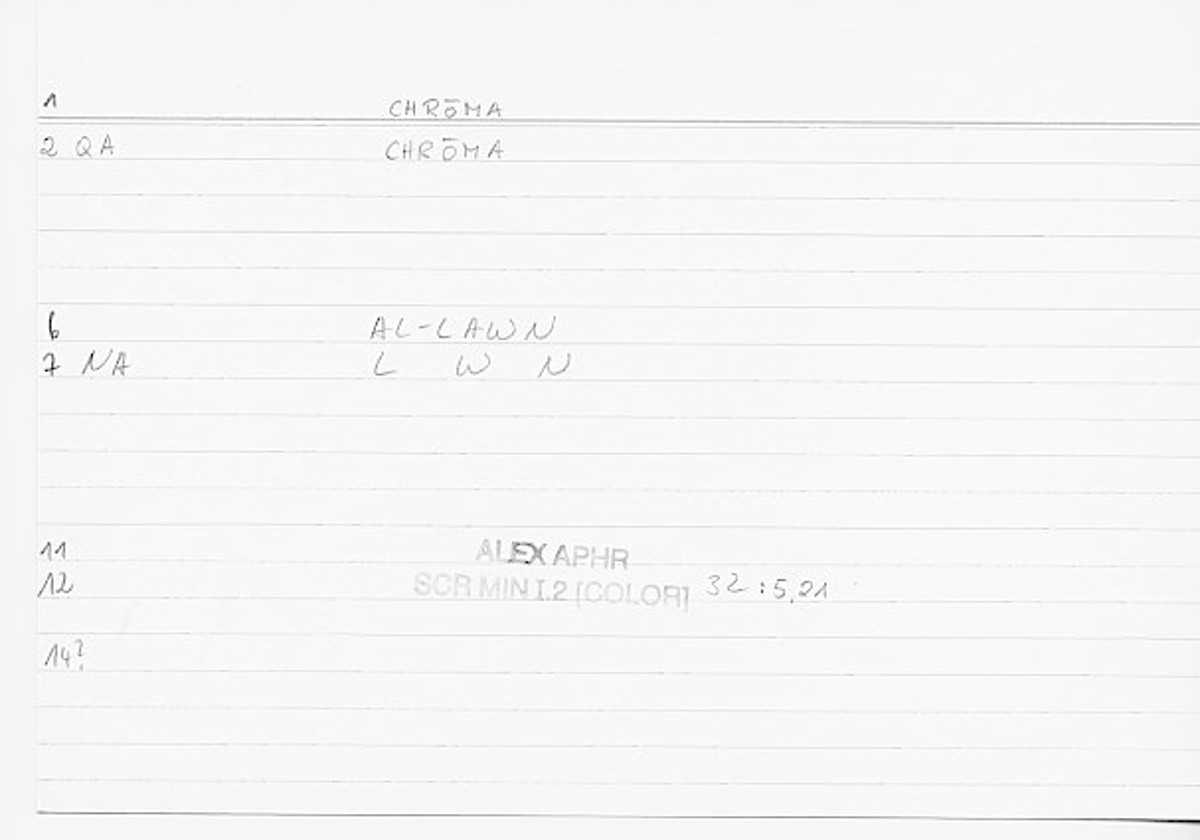 1 CHRŌMA
2 QA CHRŌMA
6 AL-LAWN
7 NA L W N
11 ALEX APHR
12 SCR MIN I.2 [COLOR] 32:5,21
14?